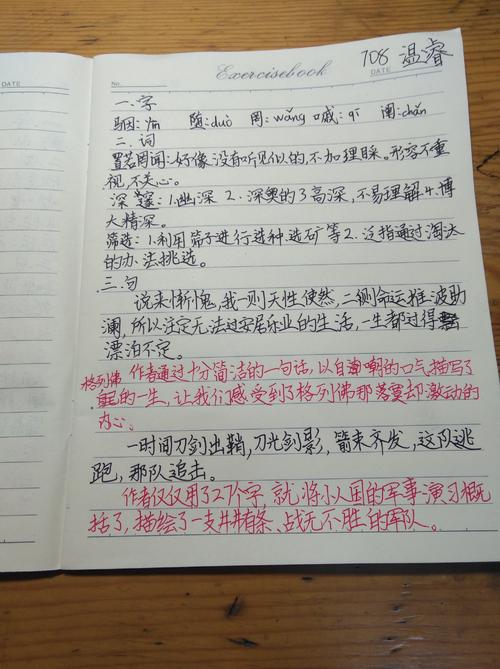 DATE
No.
Exercisebook
DATE
708 温睿
一.字
骃:yīn 堕:duò 罔:wǎng 嘁:qī 阐:chǎn
二.词
置若罔闻:好像没有听见似的,不加理睬。形容不重
视,不关心。
深邃:1.幽深 2.深奥的3高深,不易理解4.博
大精深。
筛选:1.利用筛子进行选种,选矿等2.泛指通过淘汰
的办法挑选。
三.句
说来惭愧,我一则天性使然,二侧命运推波助
澜,所以注定无法过安居乐业的生活,一生都过得
漂泊不定。
作者通过十分简洁的一句话,以自嘲的口气,描写了
格列佛
的一生,让我们感受到了格列佛那落寞却激动的
内心。
一时间刀剑出鞘,刀光剑影,箭束齐发,这队逃
跑,那队追击。
作者仅仅用了27个字,就将小人国的军事演习概
括了,描绘了一支井井有条、战无不胜的军队。